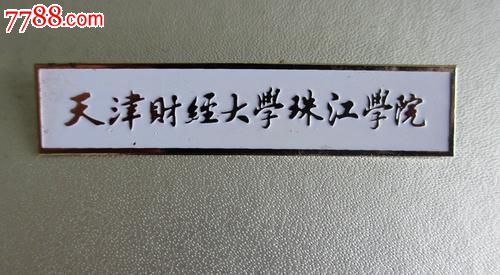 7788.com
天津財經大學珠江學院